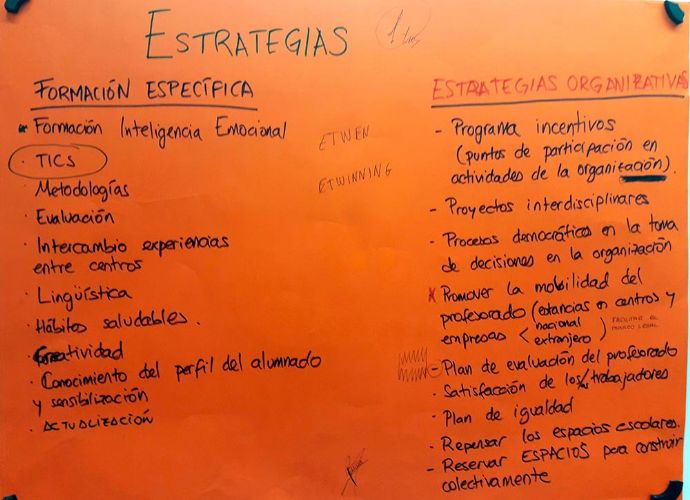 ESTRATEGIAS
FORMACIÓN ESPECÍFICA
* Formación Inteligencia Emocional
· TICS
· Metodologías
· Evaluación
· Intercambio experiencias
entre centros
· Lingüística
· Hábitos saludables.
· Creatividad
· Conocimiento del perfil del alumnado
y sensibilización
· ACTUALIZACIÓN
ETWEN
ETWINNING
ESTRATEGIAS ORGANIZATIVAS
- Programa incentivos
(puntos de participación en
actividades de la organización).
- Proyectos interdisciplinares
- Procesos democráticos en la toma
de decisiones en la organización
* Promover la mobilidad del
profesorado (estancias en centros y
empresas < nacional
extranjero )
FACILITAR EL
MARCO LEGAL
- Plan de evaluación del profesorado
· Satisfacción de los/as trabajadores
- Plan de igualdad
- Repensar los espacios escolares.
- Reservar ESPACIOS para construir
colectivamente